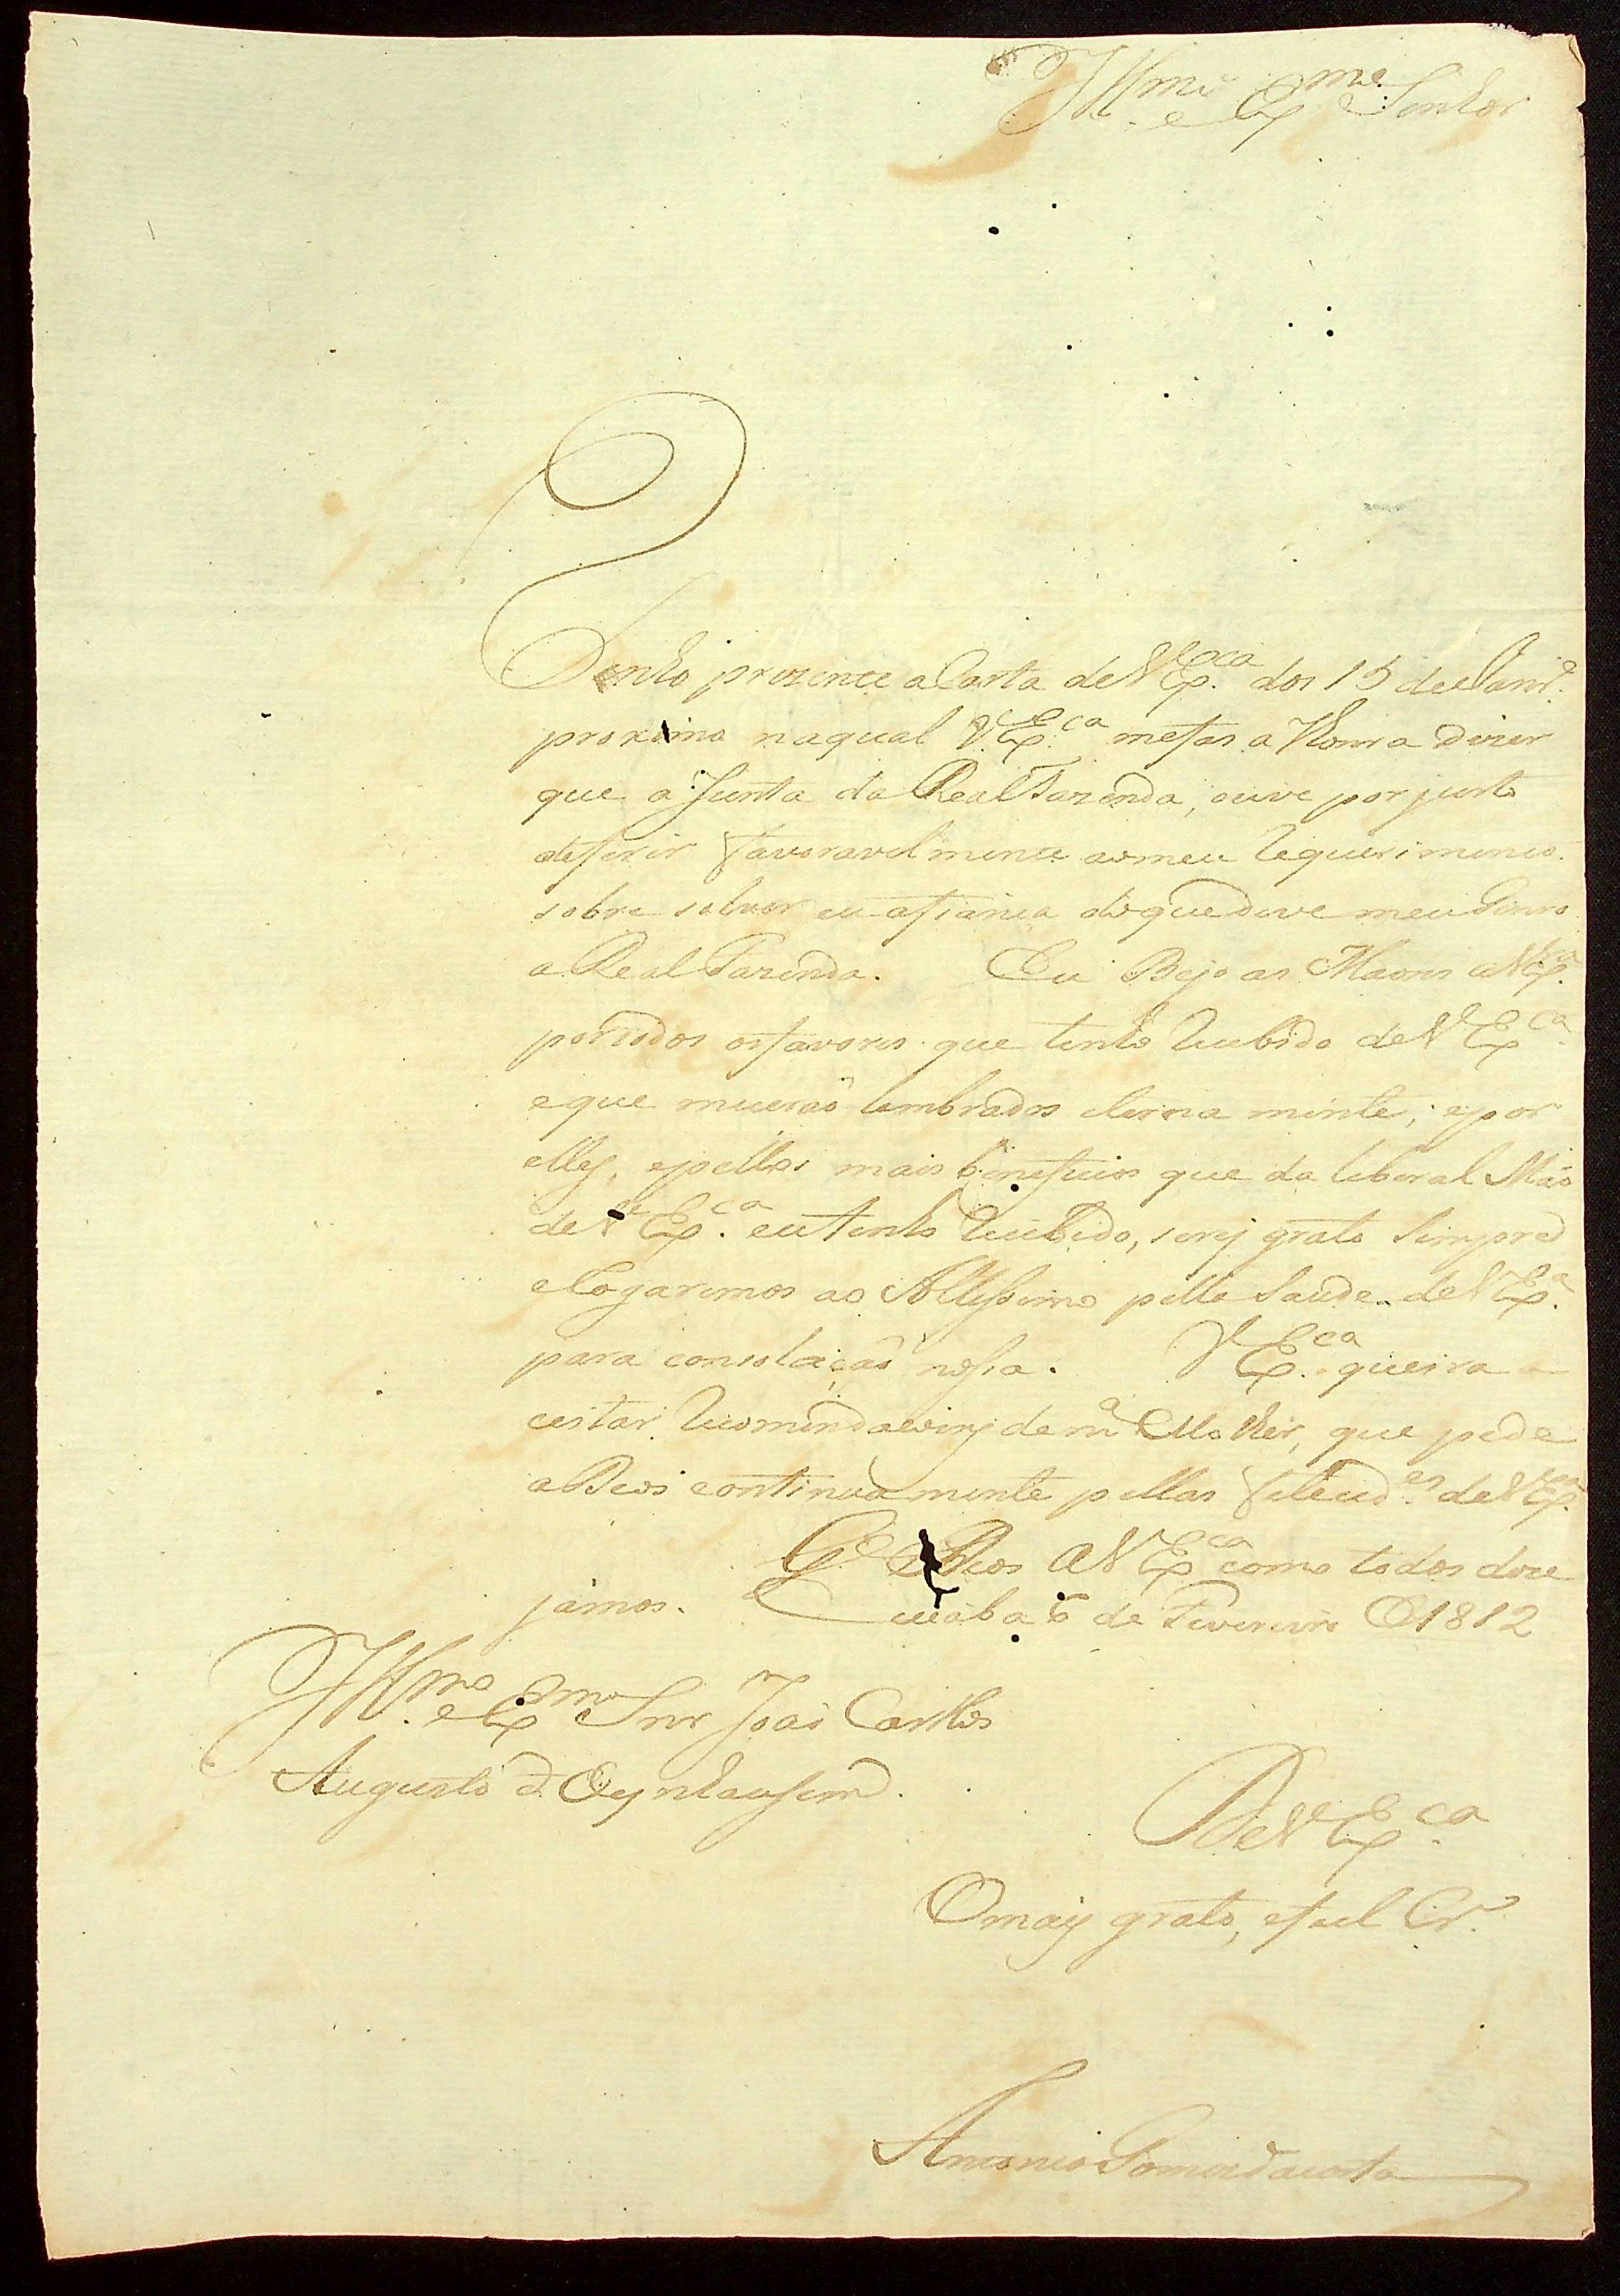 Illmo e Exmo Senhor
Tenho prezente a Carta de V Exca dos 15 de Janro
proximo na qual V. Exca mefas a Honra dizer
que a Junta da Real Fazenda, ouve por justo
deferir favoravelmente ao meu Requerimento
sobre solver eu afiança do que deve meu Genro
a Real Fazenda. Eu Bejo as Maons a V Exca
por todos os favores que tenho Recebido de V Exca
e que me seraõ lembrados eterna mente; e por
elles, e pellos mais beneficios que da liberal Maõ
de V Exca eu tenho Recebido, serej grato Sempre
e Rogaremos ao Altissimo pella Saude de V Exa
para consolaçaõ nossa. V Exca queira a
ceitar Recomendacoins de ma Molher, que pede
a Deos continuamente pellas felicides de V Exca
Ge Deos a V Exca como todos deze
jamos. Cuiaba 6 de Fevereiro D 1812
Illmo e Exmo Snr Joaõ Carllos
Augusto d' Oeynhausen.
De V Exca
O mais grato, e fiel Cro
Antonio Gomes da costa